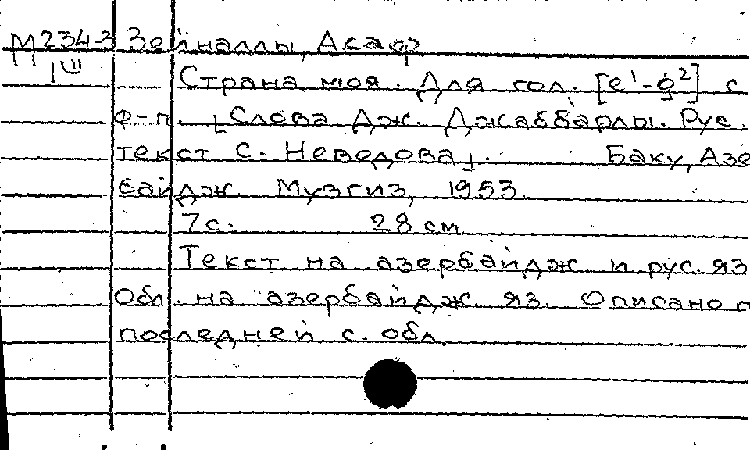 М234-3 Зейналлы, Асаф
III
Страна моя. Для гол. [e¹-g²] с
ф-п. [Слова Дж. Джаббарлы. Рус.
текст С. Неведова]. Баку, Азе
байдж. Музгиз, 1953.
7с. 28 см.
Текст на азербайдж. и рус. яз
Обл. на азербайдж. яз. Описано п
последней с. обл.